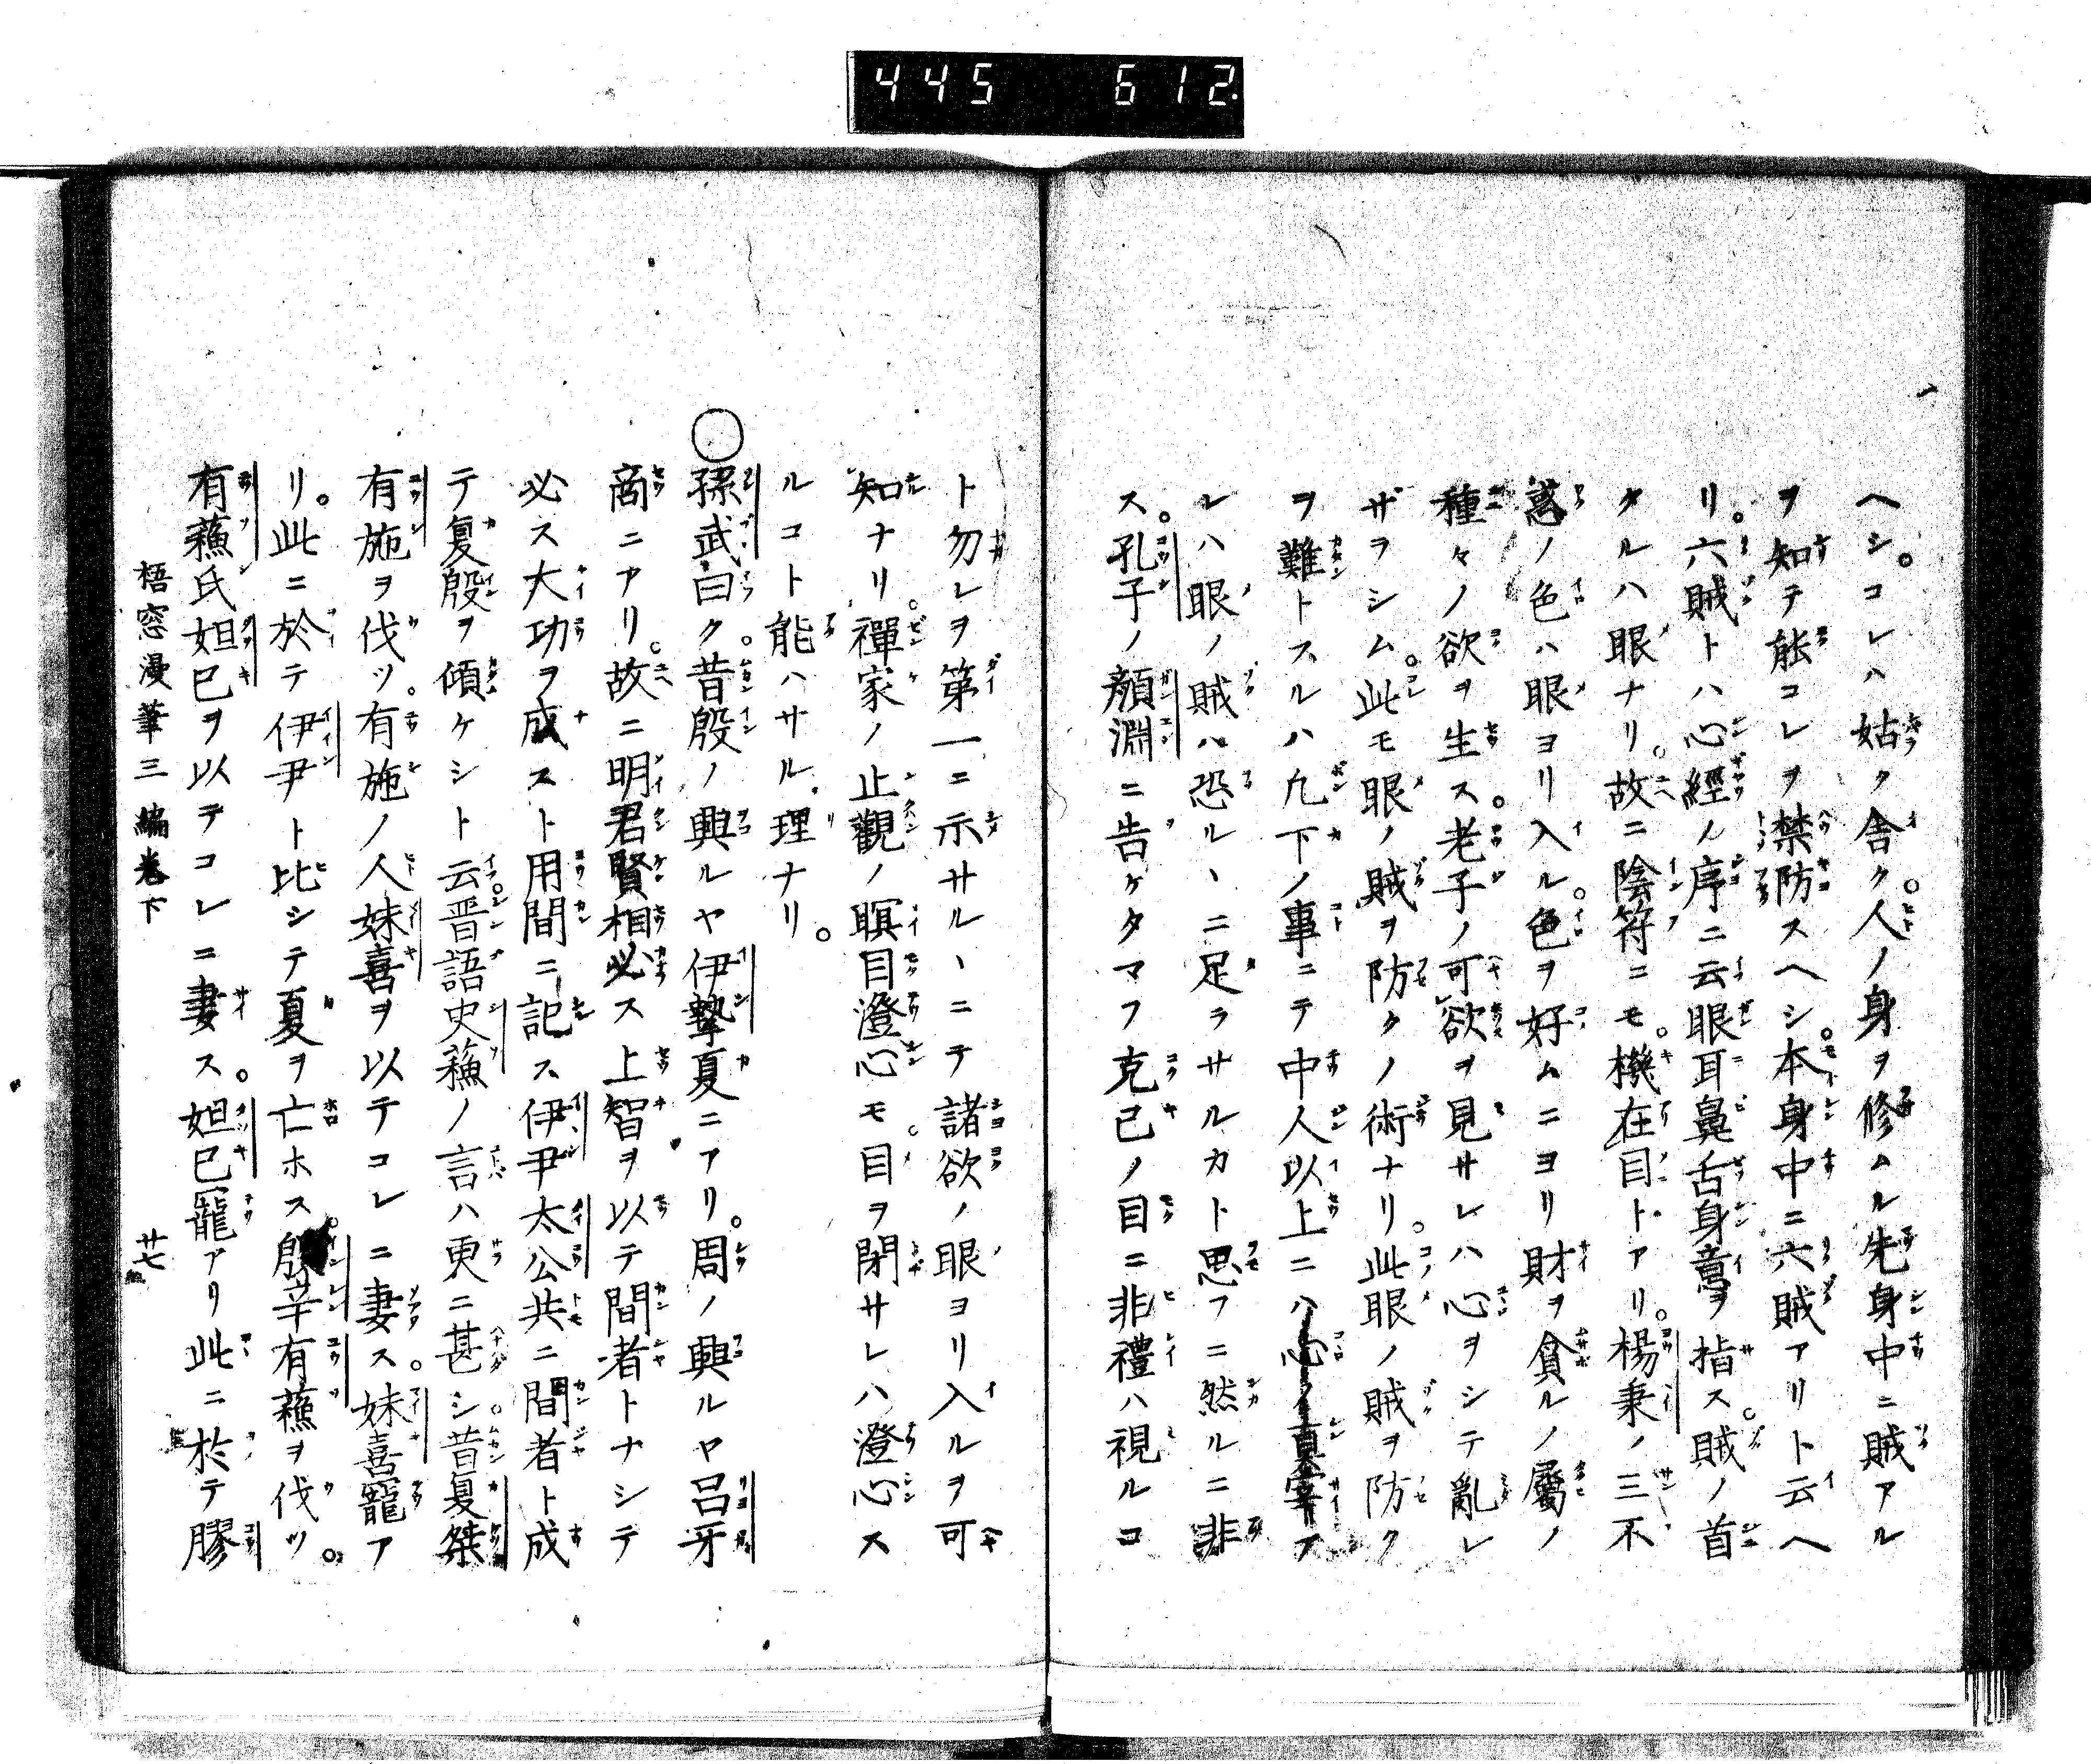 445 612.
ヘシ。コレハ姑ク舎ク。人ノ身ヲ修ムル先身中ニ賊アル
ヲ知テ能コレヲ禁防スヘシ。本身中ニ六賊アリト云ヘ
リ。六賊トハ心經ノ序ニ云眼耳鼻舌身意ヲ指ス。賊ノ首
タルハ眼ナリ。故ニ陰符ニモ。機在目トアリ。楊秉ノ三不
惑ノ色ハ眼ヨリ入ル。色ヲ好ムニヨリ財ヲ貪ルノ屬ノ
種々ノ欲ヲ生ス。老子ノ可欲ヲ見サレハ心ヲシテ亂レ
ザラシム。此モ眼ノ賊ヲ防クノ術ナリ。此眼ノ賊ヲ防ク
ヲ難トスルハ凡下ノ事ニテ中人以上ニハ心ノ真宰アス
レハ眼ノ賊ハ恐ルヽニ足ラサルカト思フニ然ルニ非
ス。孔子ノ顏淵ニ告ケタマフ克己ノ目ニ非禮ハ視ルコ
ト勿レヲ第一ニ示サルヽニテ諸欲ノ眼ヨリ入ルヲ可
知ナリ。禪家ノ止觀ノ瞑目澄心モ。目ヲ閉サレハ澄心ス
ルコト能ハサル理ナリ。
○孫武曰ク。昔殷ノ興ルヤ伊摯夏ニアリ。周ノ興ルヤ呂牙
商ニアリ。故ニ明君賢相必ス上智ヲ以テ間者トナシテ
必ス大功ヲ成スト用間ニ記ス伊尹太公共ニ間者ト成
テ夏殷ヲ傾ケシト云。晋語史蘓ノ言ハ更ニ甚シ。昔夏桀
有施ヲ伐ツ。有施ノ人妹喜ヲ以テコレニ妻ス。妹喜寵ア
リ。此ニ於テ伊尹ト比シテ夏ヲ亡ホス。殷辛有蘓ヲ伐ツ。
有蘓氏妲己ヲ以テコレニ妻ス。妲己寵アリ此ニ於テ膠
梧窓漫筆三編卷下 廿七